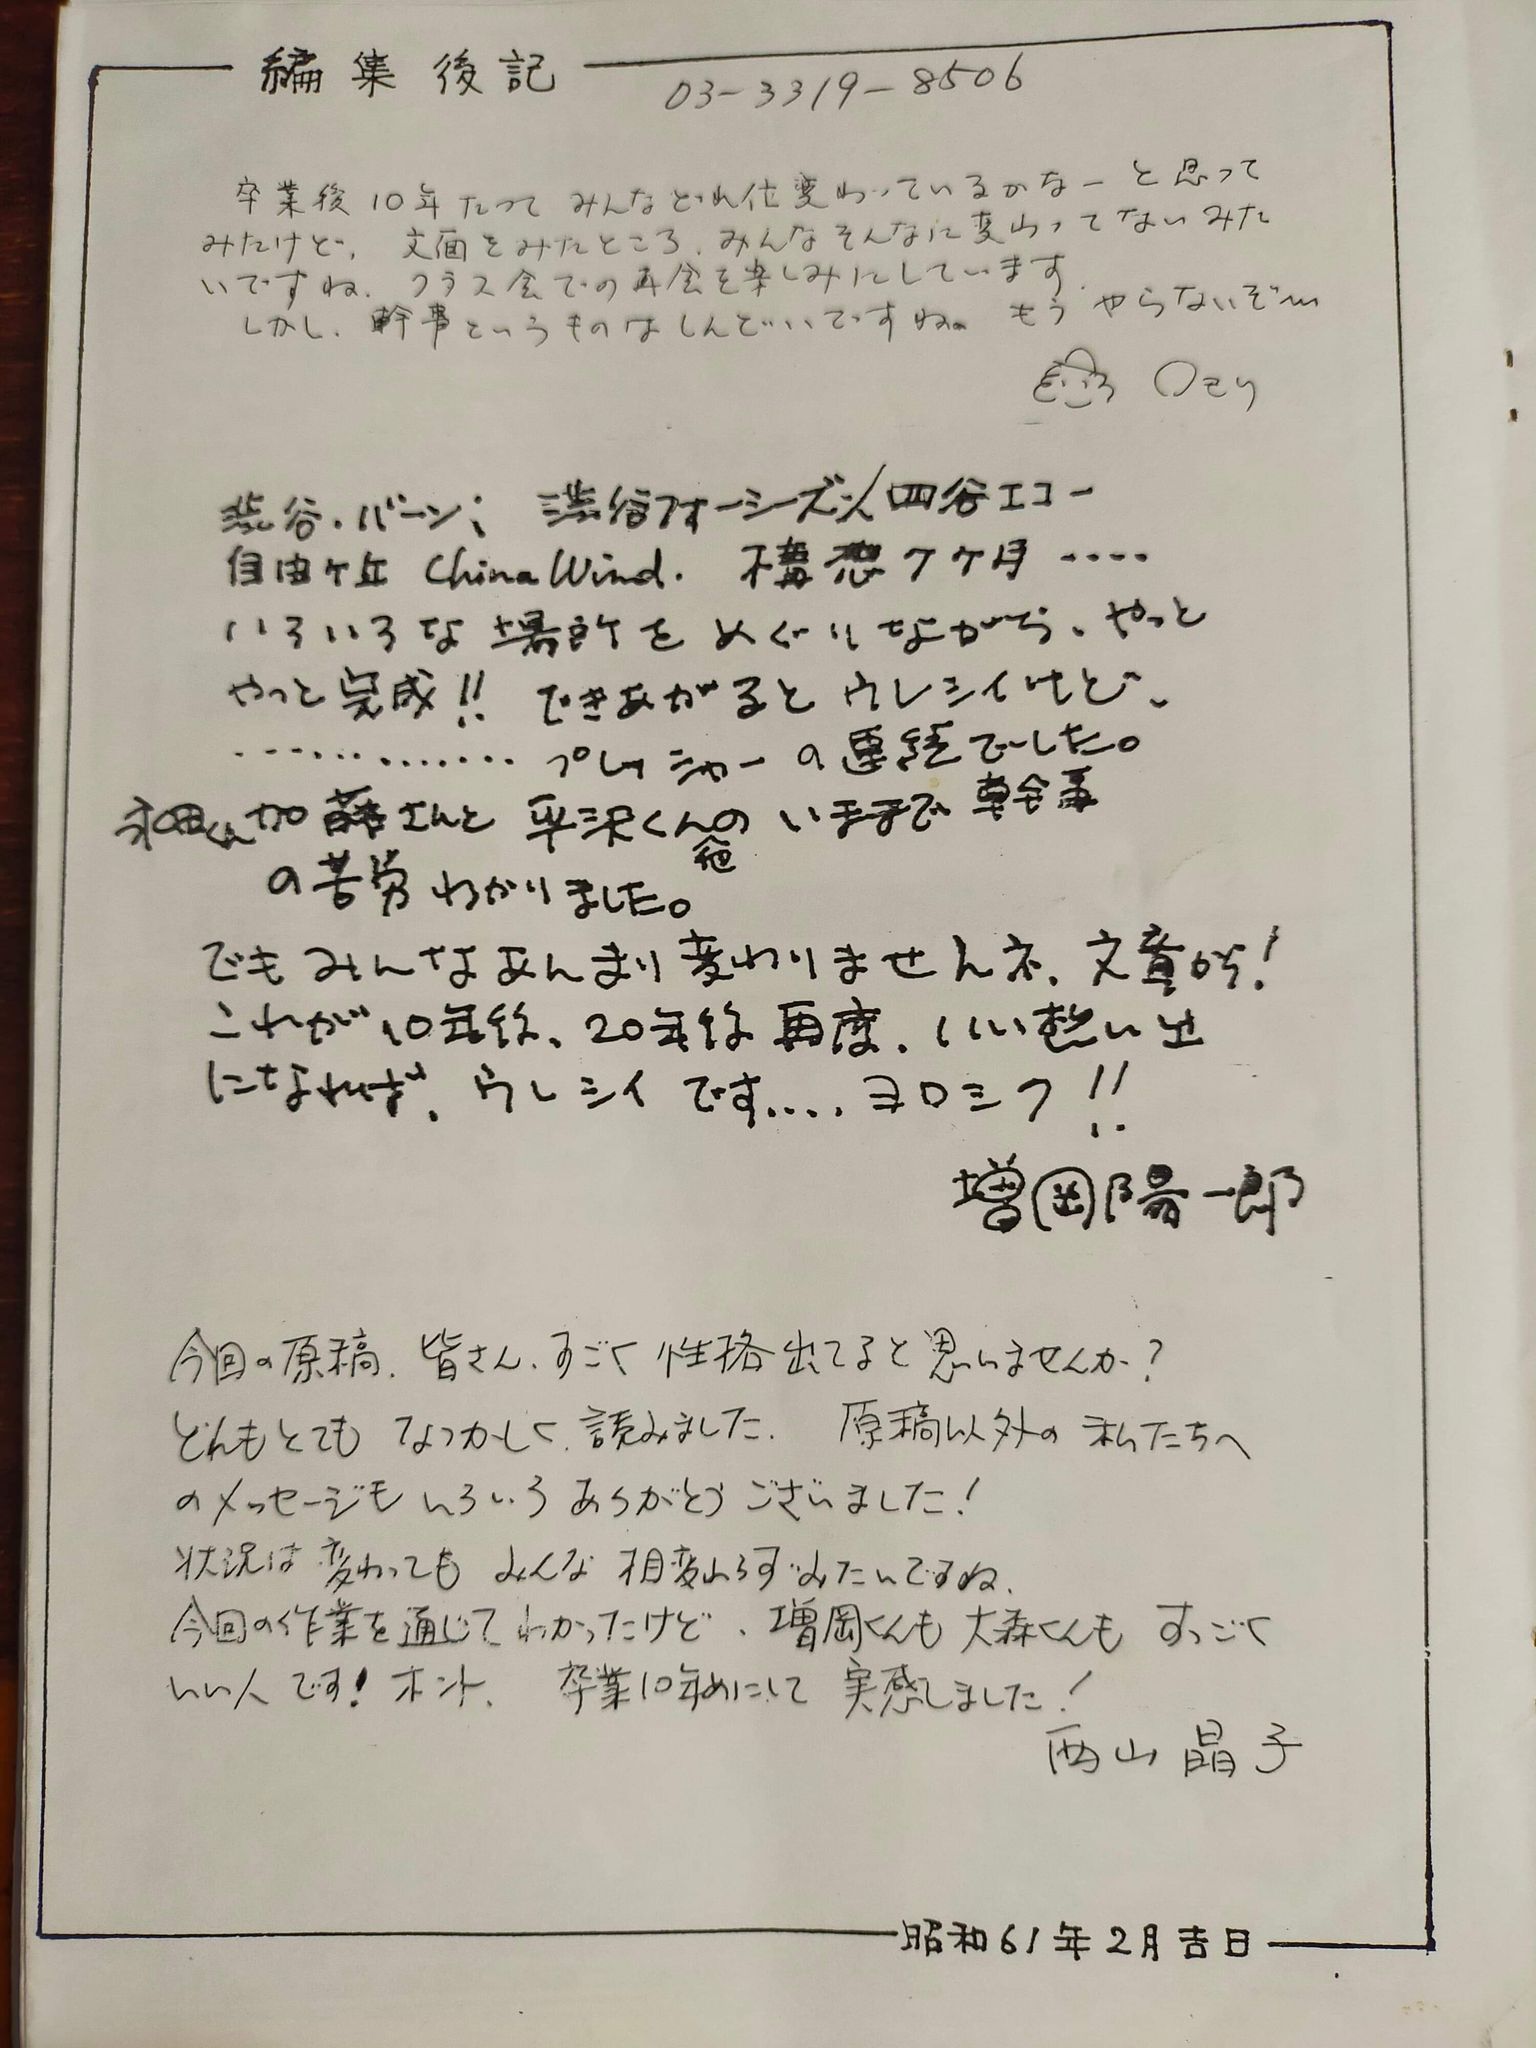 編集後記
03-3319-8506
卒業後10年たって みんなどれ位変わっているかなーと思って
みたけど、文面をみたところ、みんなそんなに変わってないみた
いですね。クラス会での再会を楽しみにしています。
しかし、幹事というものはしんどいですね。もうやらないぞ〜
Ozy
渋谷・バーン; 渋谷フォーシーズン/四谷エコー
自由ヶ丘 China Wind. 構想7ヶ月‥‥
いろいろな場所をめぐりながら、やっと
やっと完成!! できあがるとウレシイけど、
‥‥‥‥‥‥ プレッシャーの連続でした。
加藤さんと平沢くんの いままで幹事
他
の苦労わかりました。
でもみんなあんまり変わりませんネ、文章から!
これが10年後、20年後再度、いい想い出
になれば、ウレシイです‥‥ヨロシク!!
増岡陽一郎
今回の原稿、皆さん、すごく性格出てると思いませんか?
どれもとてもなつかしく読みました。原稿以外の私たちへ
のメッセージもいろいろありがとうございました!
状況は変わってもみんな相変わらずみたいですね。
今回の作業を通じてわかったけど、増岡くんも大森くんもすっごく
いい人です! ホント。卒業10年めにして実感しました!
西山晶子
昭和61年2月吉日